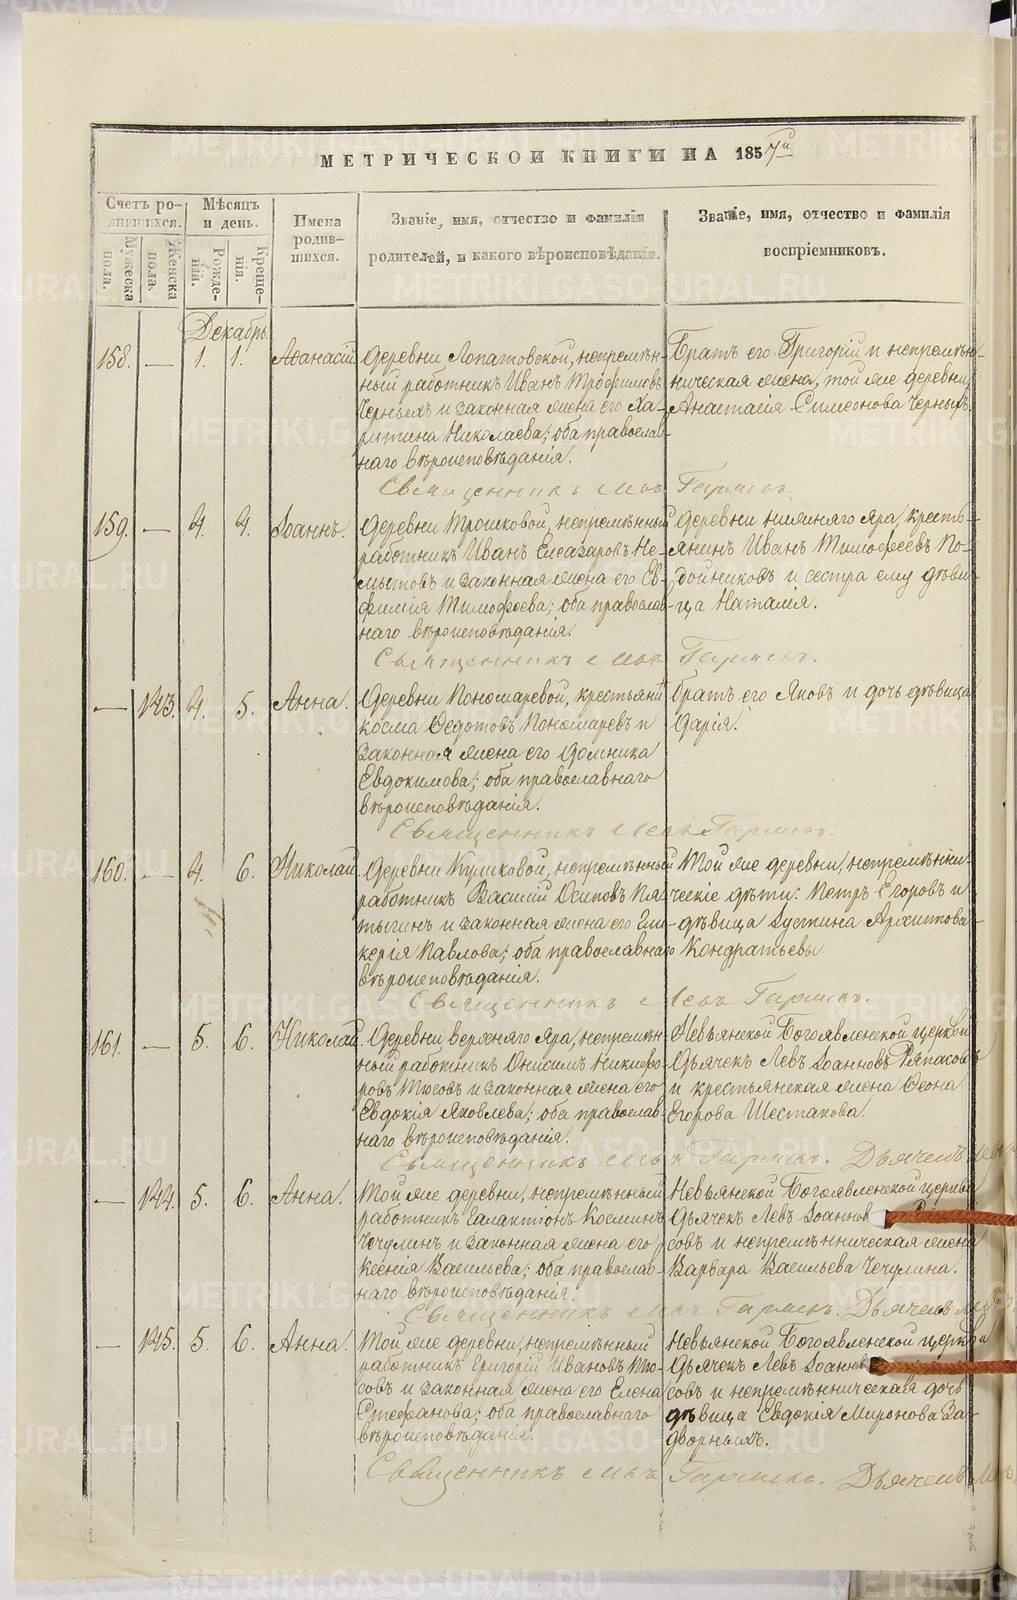 МЕТРИЧЕСКОЙ КНИГИ НА 1857й
Счетъ родившихся.
Мѣсяцъ и день.
Имена родившихся.
Званіе, имя, отчество и фамилія
родителей, и какого вѣроисповѣданія.
Званіе, имя, отчество и фамилія
воспріемниковъ.
Мужеска пола.
Женска пола.
Рожденій.
Крещенія.
Декабрь
158. — 1. 1. Аѳанасій
Деревни Лопатовской, непремѣн-
ный работникъ Иванъ Трофимовъ
Черныхъ и законная жена его Ха-
ритина Николаева; оба православ-
наго вѣроисповѣданія.
Братъ его Григорій и непремѣн-
ническая жена, той же деревни,
Анастасія Симеонова Черныхъ.
Священникъ
159. — 4. 4. Іоаннъ.
Деревни Трошковой, непремѣнный
работникъ Иванъ Елеазаровъ Не-
мытовъ и законная жена его Ев-
фимія Тимофеева; оба православ-
наго вѣроисповѣданія.
Деревни нижняго Яра, кресть-
янинъ Иванъ Тимофеевъ По-
дойниковъ и сестра ему дѣви-
ца Наталія.
Священникъ
— 143. 4. 5. Анна.
Деревни Пономаревой, крестьянинъ
Косма Ѳедотовъ Пономаревъ и
законная жена его Домника
Евдокимова; оба православнаго
вѣроисповѣданія.
Братъ его Яковъ и дочь дѣвица
Дарія.
Священникъ
160. — 4. 6. Николай
Деревни Куликовой, непремѣнный
работникъ Василій Осиповъ Пя-
тыгинъ и законная жена его Гли-
керія Павлова; оба православнаго
вѣроисповѣданія.
Той же деревни, непремѣнни-
ческіе дѣти: Петръ Егоровъ и
дѣвица Іустина Архипова
Кондратьевы
Священникъ
161. — 5. 6. Николай
Деревни верхняго Яра, непремѣн-
ный работникъ Онисимъ Никифо-
ровъ Тюсовъ и законная жена его
Евдокія Яковлева; оба православ-
наго вѣроисповѣданія.
Невьянской Богоявленской церкви
Дьячекъ Левъ Іоанновъ Ряпасовъ
и крестьянская жена Ѳеона
Егорова Шестакова.
Священникъ Дьячекъ Левъ
— 144. 5. 6. Анна.
Той же деревни, непремѣнный
работникъ Галактіонъ Косминъ
Чечулинъ и законная жена его
Ксенія Васильева; оба православ-
наго вѣроисповѣданія.
Невьянской Богоявленской церкви
Дьячекъ Левъ Іоаннов
совъ и непремѣнническая жена
Варвара Васильева Чечулина.
Священникъ Дьячекъ
— 145. 5. 6. Анна.
Той же деревни, непремѣнный
работникъ Григорій Ивановъ Тю-
совъ и законная жена его Елена
Стефанова; оба православнаго
вѣроисповѣданія.
Невьянской Богоявленской церкви
Дьячекъ Левъ Іоанн
совъ и непремѣнническая дочь
дѣвица Евдокія Миронова За-
дворныхъ.
Священникъ Дьячекъ
METRIKI.GASO-URAL.RU